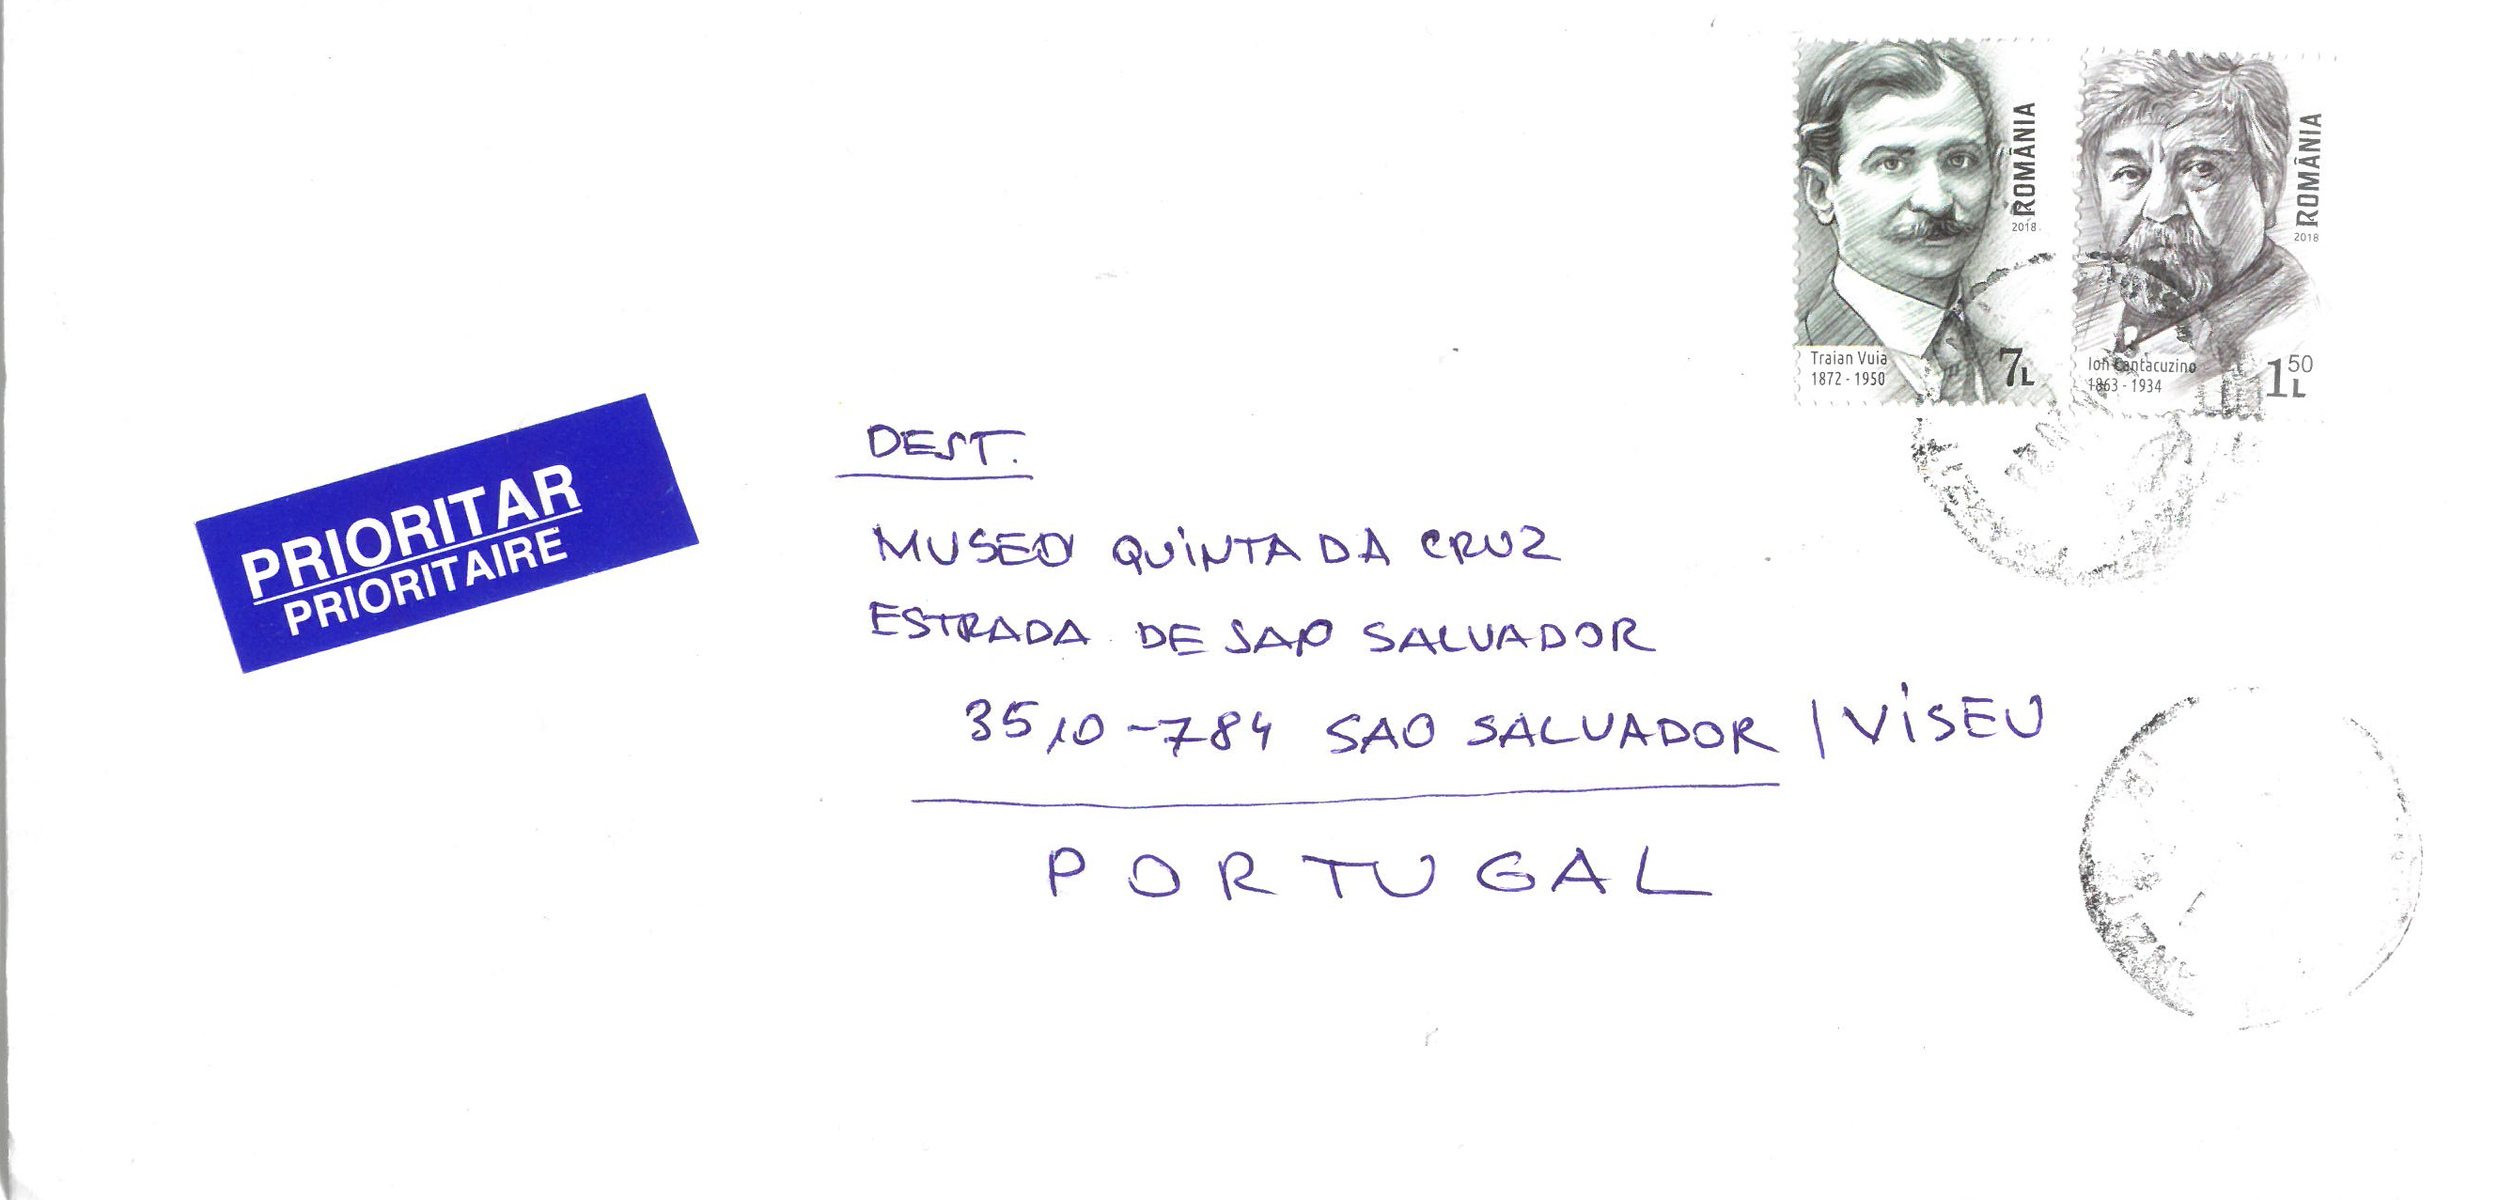 ROMÂNIA
2018
Traian Vuia
1872 - 1950
7L
ROMÂNIA
2018
Ion Cantacuzino
1863 - 1934
1 50 L
PRIORITAR
PRIORITAIRE
DEST.
MUSEO QUINTA DA CRUZ
ESTRADA DE SAO SALVADOR
3510-784 SAO SALVADOR / VISEU
PORTUGAL